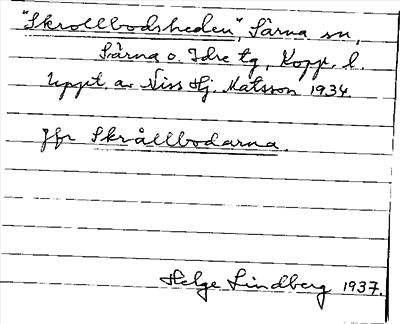 "Skrollbodsheden", Särna sn,
Särna o. Idre tg, Kopp. l.
Uppt. av Niss Hj. Matsson 1934
Jfr Skrållbodarna.
Helge Lindberg 1937.